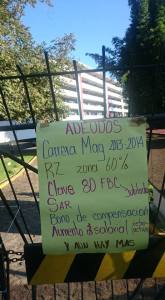 ADEUDOS
Carrera Mag 2013-2014
RZ zona 60%
Clave 80 FBC
Jubilados
SAR
Bono de compensación
Aumento al salarial activo
Y AUN HAY MAS